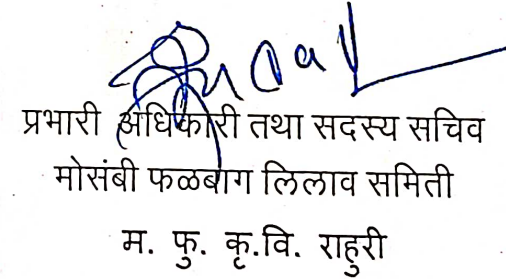 प्रभारी अधिकारी तथा सदस्य सचिव
मोसंबी फळबाग लिलाव समिती
म. फु. कृ.वि. राहुरी